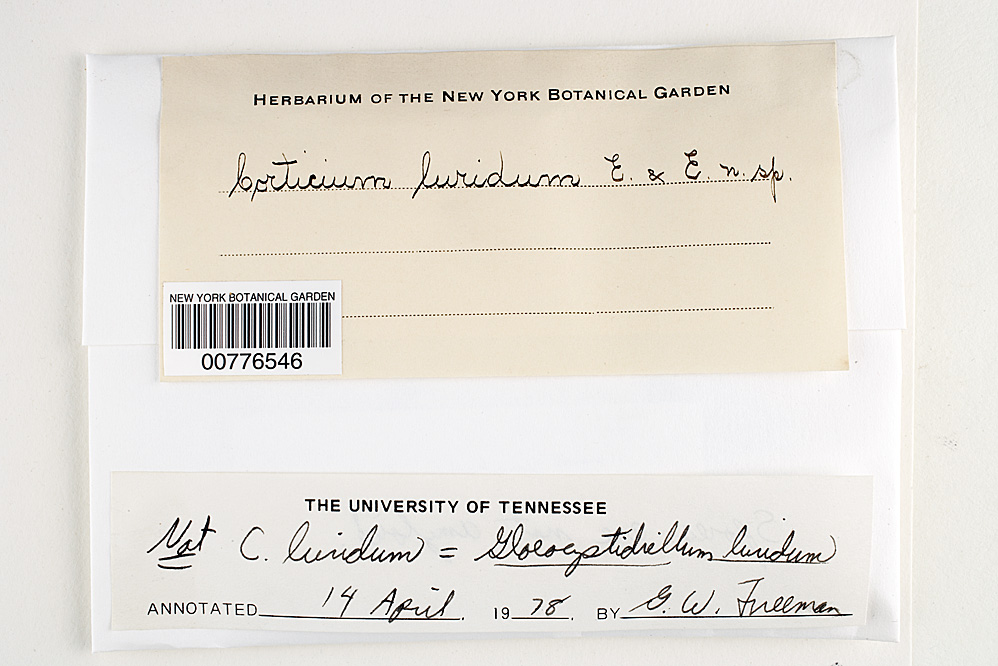 HERBARIUM OF THE NEW YORK BOTANICAL GARDEN
Corticium luridum E. & E. n. sp.
NEW YORK BOTANICAL GARDEN
00776546
THE UNIVERSITY OF TENNESSEE
Not C. luridum = Gloeocystidiellum luridum
ANNOTATED 14 April. 1978. BY G. W. Freeman